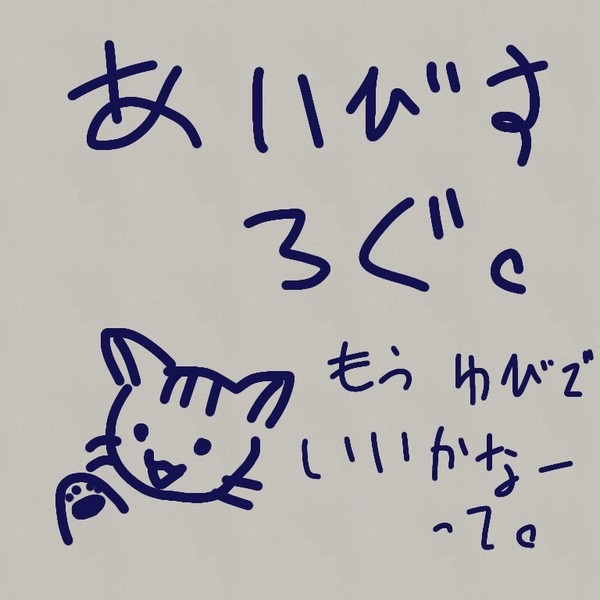 あいびす
ろぐ。
もうゆびで
いいかなー
って。